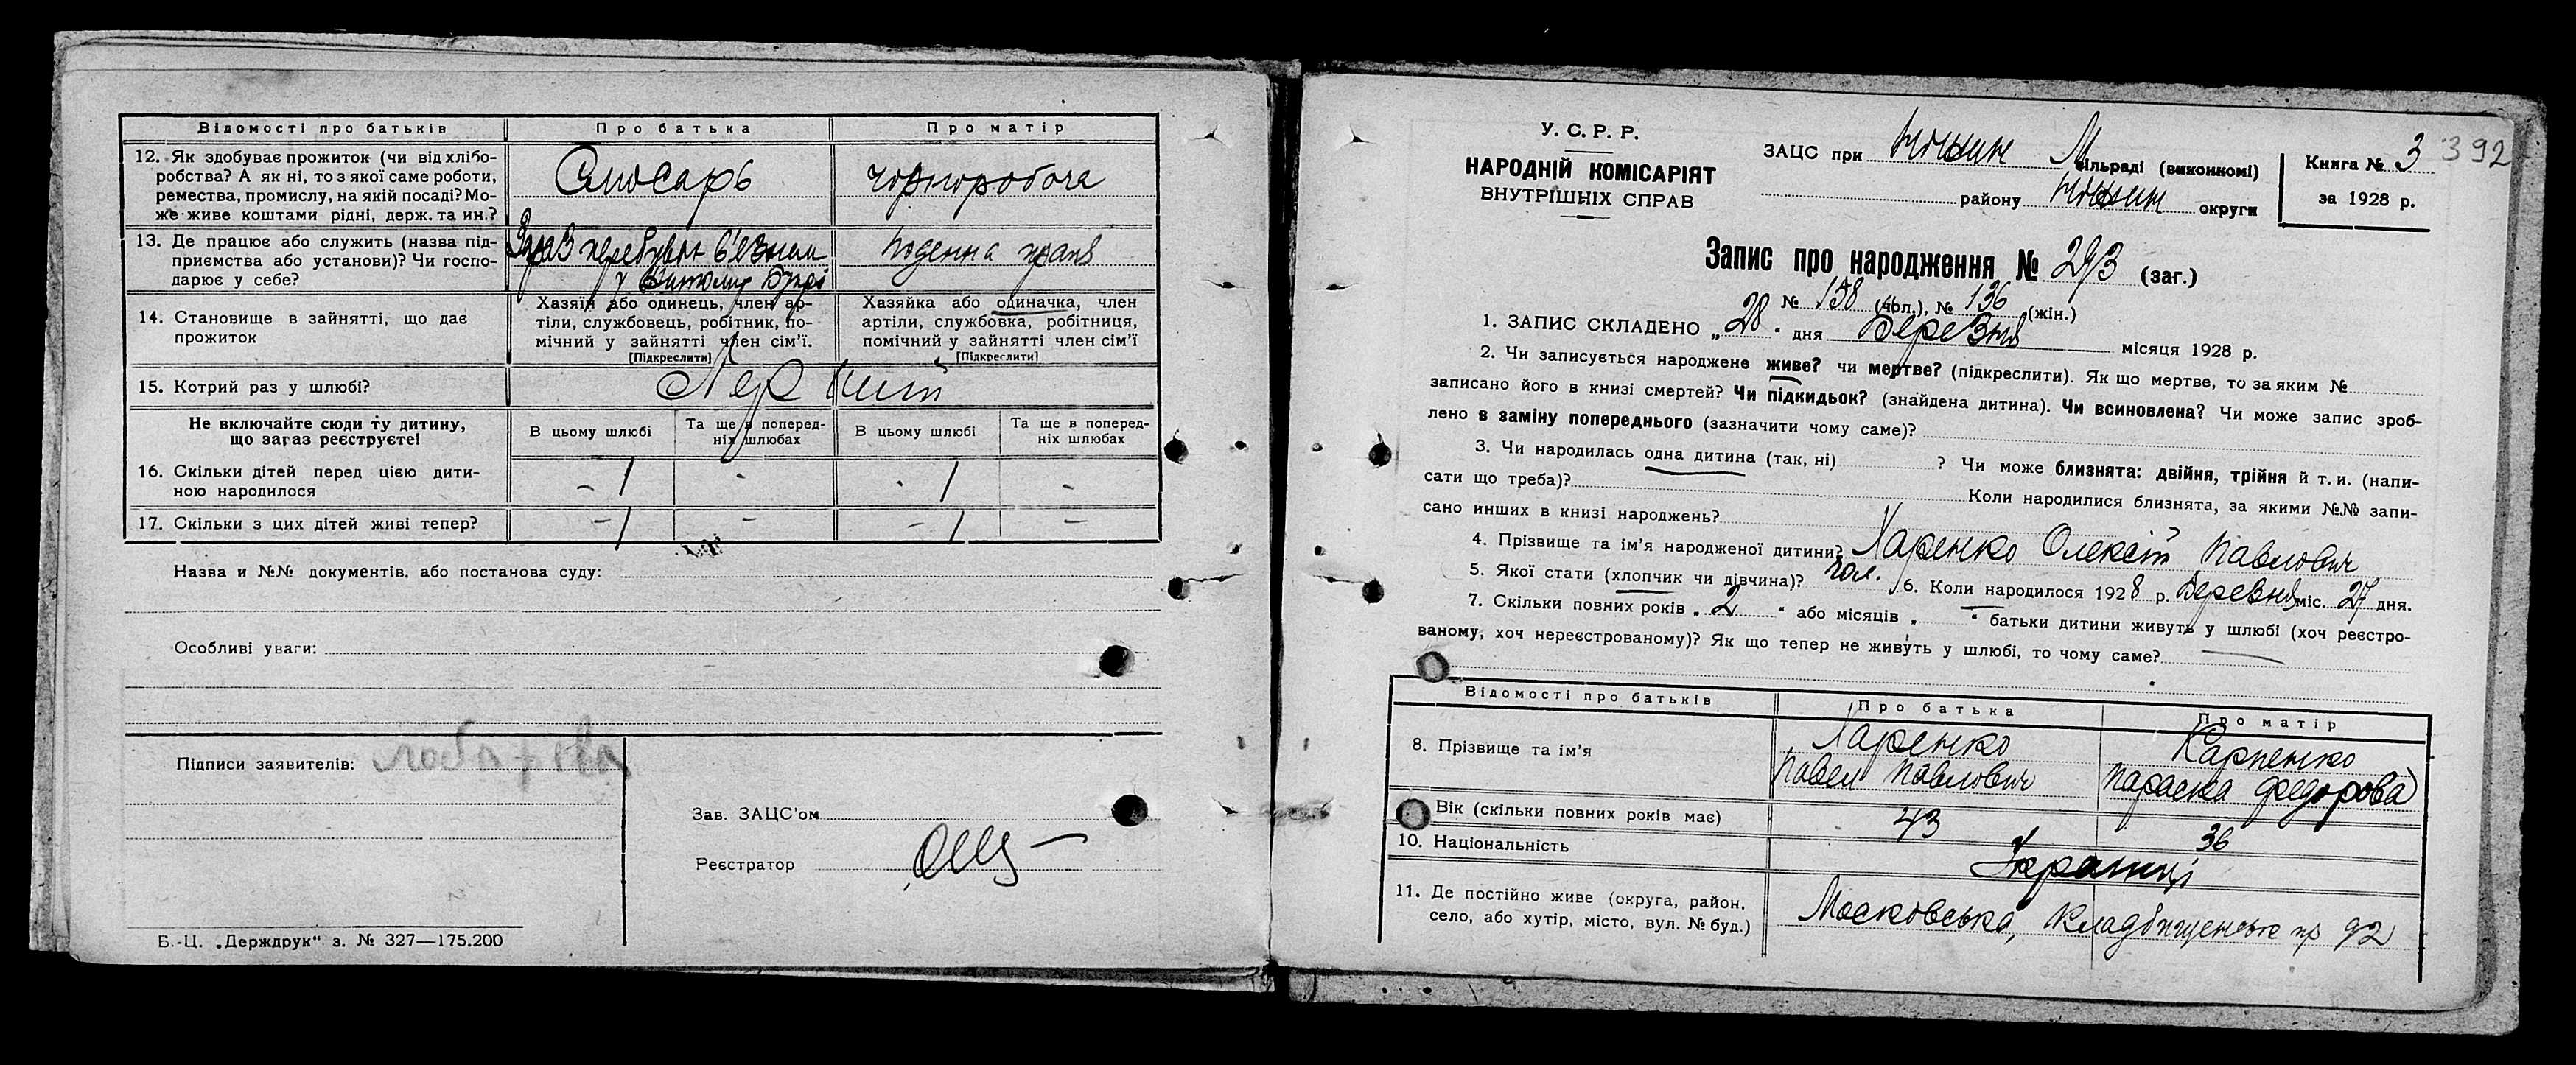 Відомості про батьків Про батька Про матір
12. Як здобуває прожиток (чи від хлібо-
робства? А як ні, то з якої саме роботи,
ремества, промислу, на якій посаді? Мо-
же живе коштами рідні, держ. та ин.?
Слюсарь чорноробоча
13. Де працює або служить (назва під-
приємства або установи)? Чи госпо-
дарює у себе?
Зараз перебуває в'язнем
у Бупрі
Поденна праця
14. Становище в зайнятті, що дає
прожиток
Хазяїн або одинець, член ар-
тіли, службовець, робітник, по-
мічний у зайнятті член сім'ї.
[Підкреслити]
Хазяйка або одиначка, член
артіли, службовка, робітниця,
помічний у зайнятті член сім'ї
[Підкреслити]
15. Котрий раз у шлюбі?
Перший
Не включайте сюди ту дитину,
що зараз реєструєте!
В цьому шлюбі
Та ще в поперед-
ніх шлюбах
В цьому шлюбі
Та ще в поперед-
ніх шлюбах
16. Скільки дітей перед цією дити-
ною народилося
– 1 - - 1 -
17. Скільки з цих дітей живі тепер?
– 1 – – 1 –
Назва и №№ документів, або постанова суду:
Особливі уваги:
Підписи заявителів:
Зав. ЗАЦС'ом
Реєстратор
Б.-Ц. „Держдрук“ з. № 327—175.200
У. С. Р. Р.
НАРОДНІЙ КОМІСАРІЯТ
ВНУТРІШНІХ СПРАВ
ЗАЦС при М ільраді (виконкомі)
району округи
Книга № 3
за 1928 р.
392
Запис про народження № 293 (заг.)
№ 158 (чол.), № 136 (жін.)
1. ЗАПИС СКЛАДЕНО „28“ дня Березня місяця 1928 р.
2. Чи записується народжене живе? чи мертве? (підкреслити). Як що мертве, то за яким №
записано його в книзі смертей? Чи підкидьок? (знайдена дитина). Чи всиновлена? Чи може запис зроб-
лено в заміну попереднього (зазначити чому саме)?
3. Чи народилась одна дитина (так, ні) ? Чи може близнята: двійня, трійня й т. и. (напи-
сати що треба)? Коли народилися близнята, за якими №№ запи-
сано инших в книзі народжень?
4. Прізвище та ім'я народженої дитини? Харенко Олексій Павлович
5. Якої стати (хлопчик чи дівчина)? чол. 6. Коли народилося 1928 р. Березня міс. 27 дня.
7. Скільки повних років „ 2 “ або місяців „ “ батьки дитини живуть у шлюбі (хоч реєстро-
ваному, хоч нереєстрованому)? Як що тепер не живуть у шлюбі, то чому саме?
Відомості про батьків Про батька Про матір
8. Прізвище та ім'я
Харенко
Павел Павлович
Карпенко
Параска Федорова
Вік (скільки повних років має) 43 36
10. Національність Українці
11. Де постійно живе (округа, район,
село, або хутір, місто, вул. № буд.)
Московська, Кладбищенська пр 92